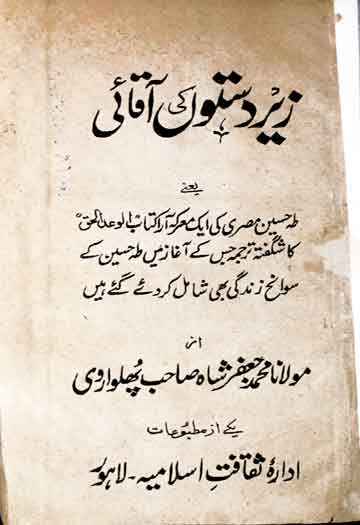 زیر دستوں کی آقائی
یعنے
طہ حسین مصری کی ایک معرکہ آرا کتاب الوعد الحق
کا شگفتہ ترجمہ جس کے آغاز میں طہ حسین کے
سوانح زندگی بھی شامل کر دئے گئے ہیں
از
مولانا محمد جعفر شاہ صاحب پھلواروی
یکے از مطبوعات
ادارۂ ثقافت اسلامیہ - لاہور